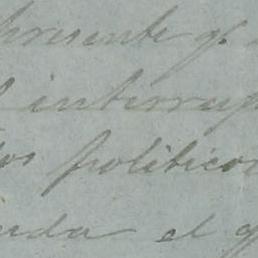 presente q.
interrup
tos politicos
ada el q